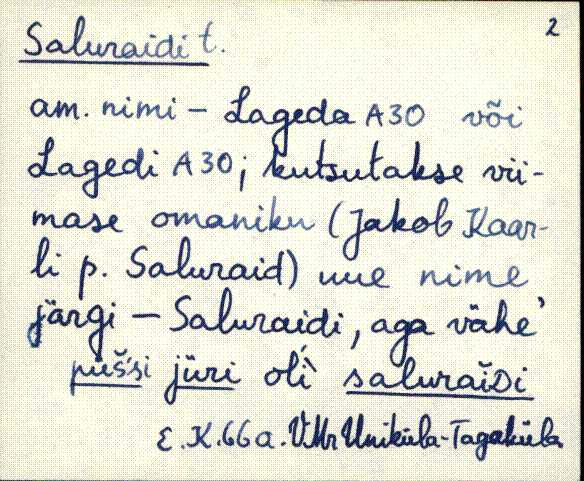 2
Saluraidi t.
am. nimi – Lageda A30 või
Lagedi A30; kutsutakse vii-
mase omaniku (Jakob Kaar-
li p. Saluraid) uue nime
järgi – Saluraidi, aga vähe'
püš̀si jüri olì saluraĭDi
E.K. 66 a. V.Mr Uniküla-Tagaküla